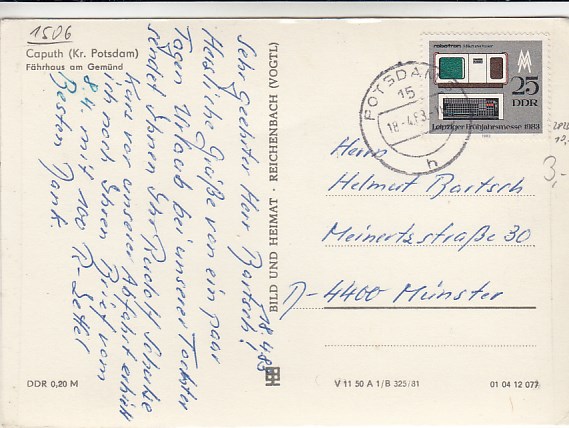 1506
Caputh (Kr. Potsdam)
Fährhaus am Gemünd
18.4.83
Sehr geehrter Herr Bartsch!
Herzliche Grüße von ein paar
Tagen Urlaub bei unserer Tochter
sendet Ihnen Ihr Rudolf
Kurz vor unserer Abfahrt erhielt
ich noch Ihren Brief vom
8.4. mit 100 R-Zettel
Besten Dank.
BILD UND HEIMAT · REICHENBACH (VOGTL)
robotron
MM
25
DDR
Leipziger Frühjahrsmesse 1983
POTSDAM
15
18.-4.83
h
3,-
Herrn
Helmut Bartsch
Meinertzstraße 30
D-4400 Münster
DDR 0,20 M
V 11 50 A 1/B 325/81
01 04 12 077